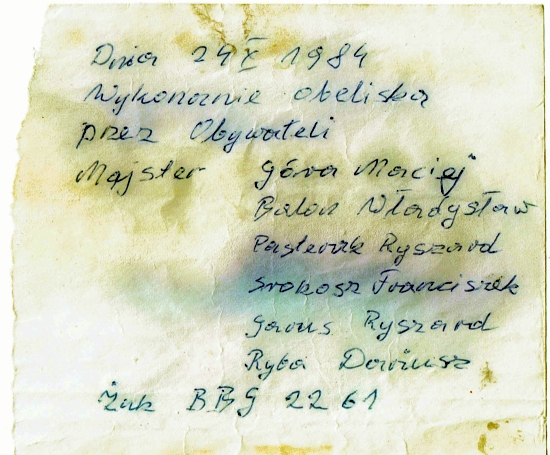 Dnia 24 X 1984
Wykonanie obeliska
przez Obywateli
Majster Góra Maciej
Balon Władysław
Pasternik Ryszard
Srokosz Franciszek
Garus Ryszard
Ryba Dariusz
Żuk BBG 22 61